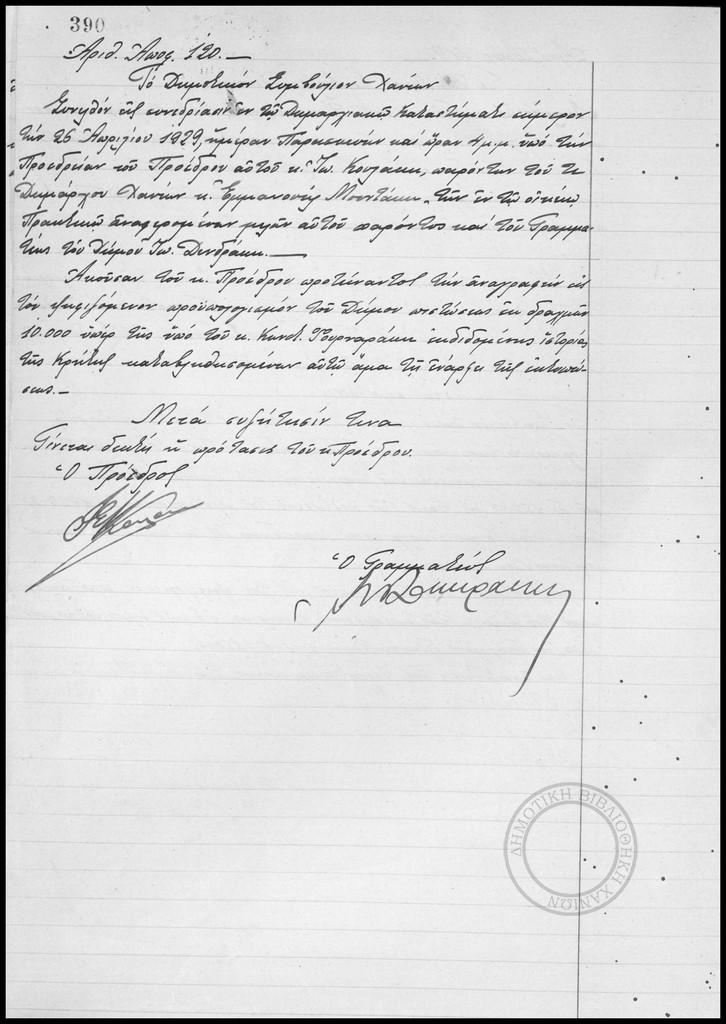 390
Αριθ. Αποφ. 120.—
Τό Δημοτικόν Συμβούλιον Χανίων
Συνελθόν εἰς συνεδρίασιν ἐν τῷ Δημαρχιακῷ Καταστήματι σήμερον
τήν 26 Απριλίου 1929, ἡμέραν Παρασκευήν καί ὥραν 4 μ.μ. ὑπό τήν
Προεδρείαν τοῦ Προέδρου αὐτοῦ κ. Ἰω. παρόντων τοῦ τε
Δημάρχου Χανίων κ. Ἐμμανουήλ Μουντάκη, τῶν ἐν τῷ οἰκείῳ
Πρακτικῷ ἀναφερομένων μελῶν αὐτοῦ παρόντος καί τοῦ Γραμμα-
τέως τοῦ Δήμου Ἰω. Δενδράκη.—
Ακούσαν τοῦ κ. Προέδρου προτείναντος τήν ἀναγραφήν εἰς
τόν ψηφιζόμενον προϋπολογισμόν τοῦ Δήμου πιστώσεως ἐκ δραχμῶν
10.000 ὑπέρ τῆς ὑπό τοῦ κ. Κωνστ. Φουρναράκη ἐκδιδομένης ἱστορίας
τῆς Κρήτης καταβληθησομένων αὐτῷ ἅμα τῇ ἐνάρξει τῆς ἐκτυπώ-
σεως.—
Μετά συζήτησίν τινα
Γίνεται δεκτή ἡ πρότασις τοῦ κ. Προέδρου.
Ὁ Πρόεδρος
Ὁ Γραμματεύς
ΔΗΜΟΤΙΚΗ ΒΙΒΛΙΟΘΗΚΗ ΧΑΝΙΩΝ